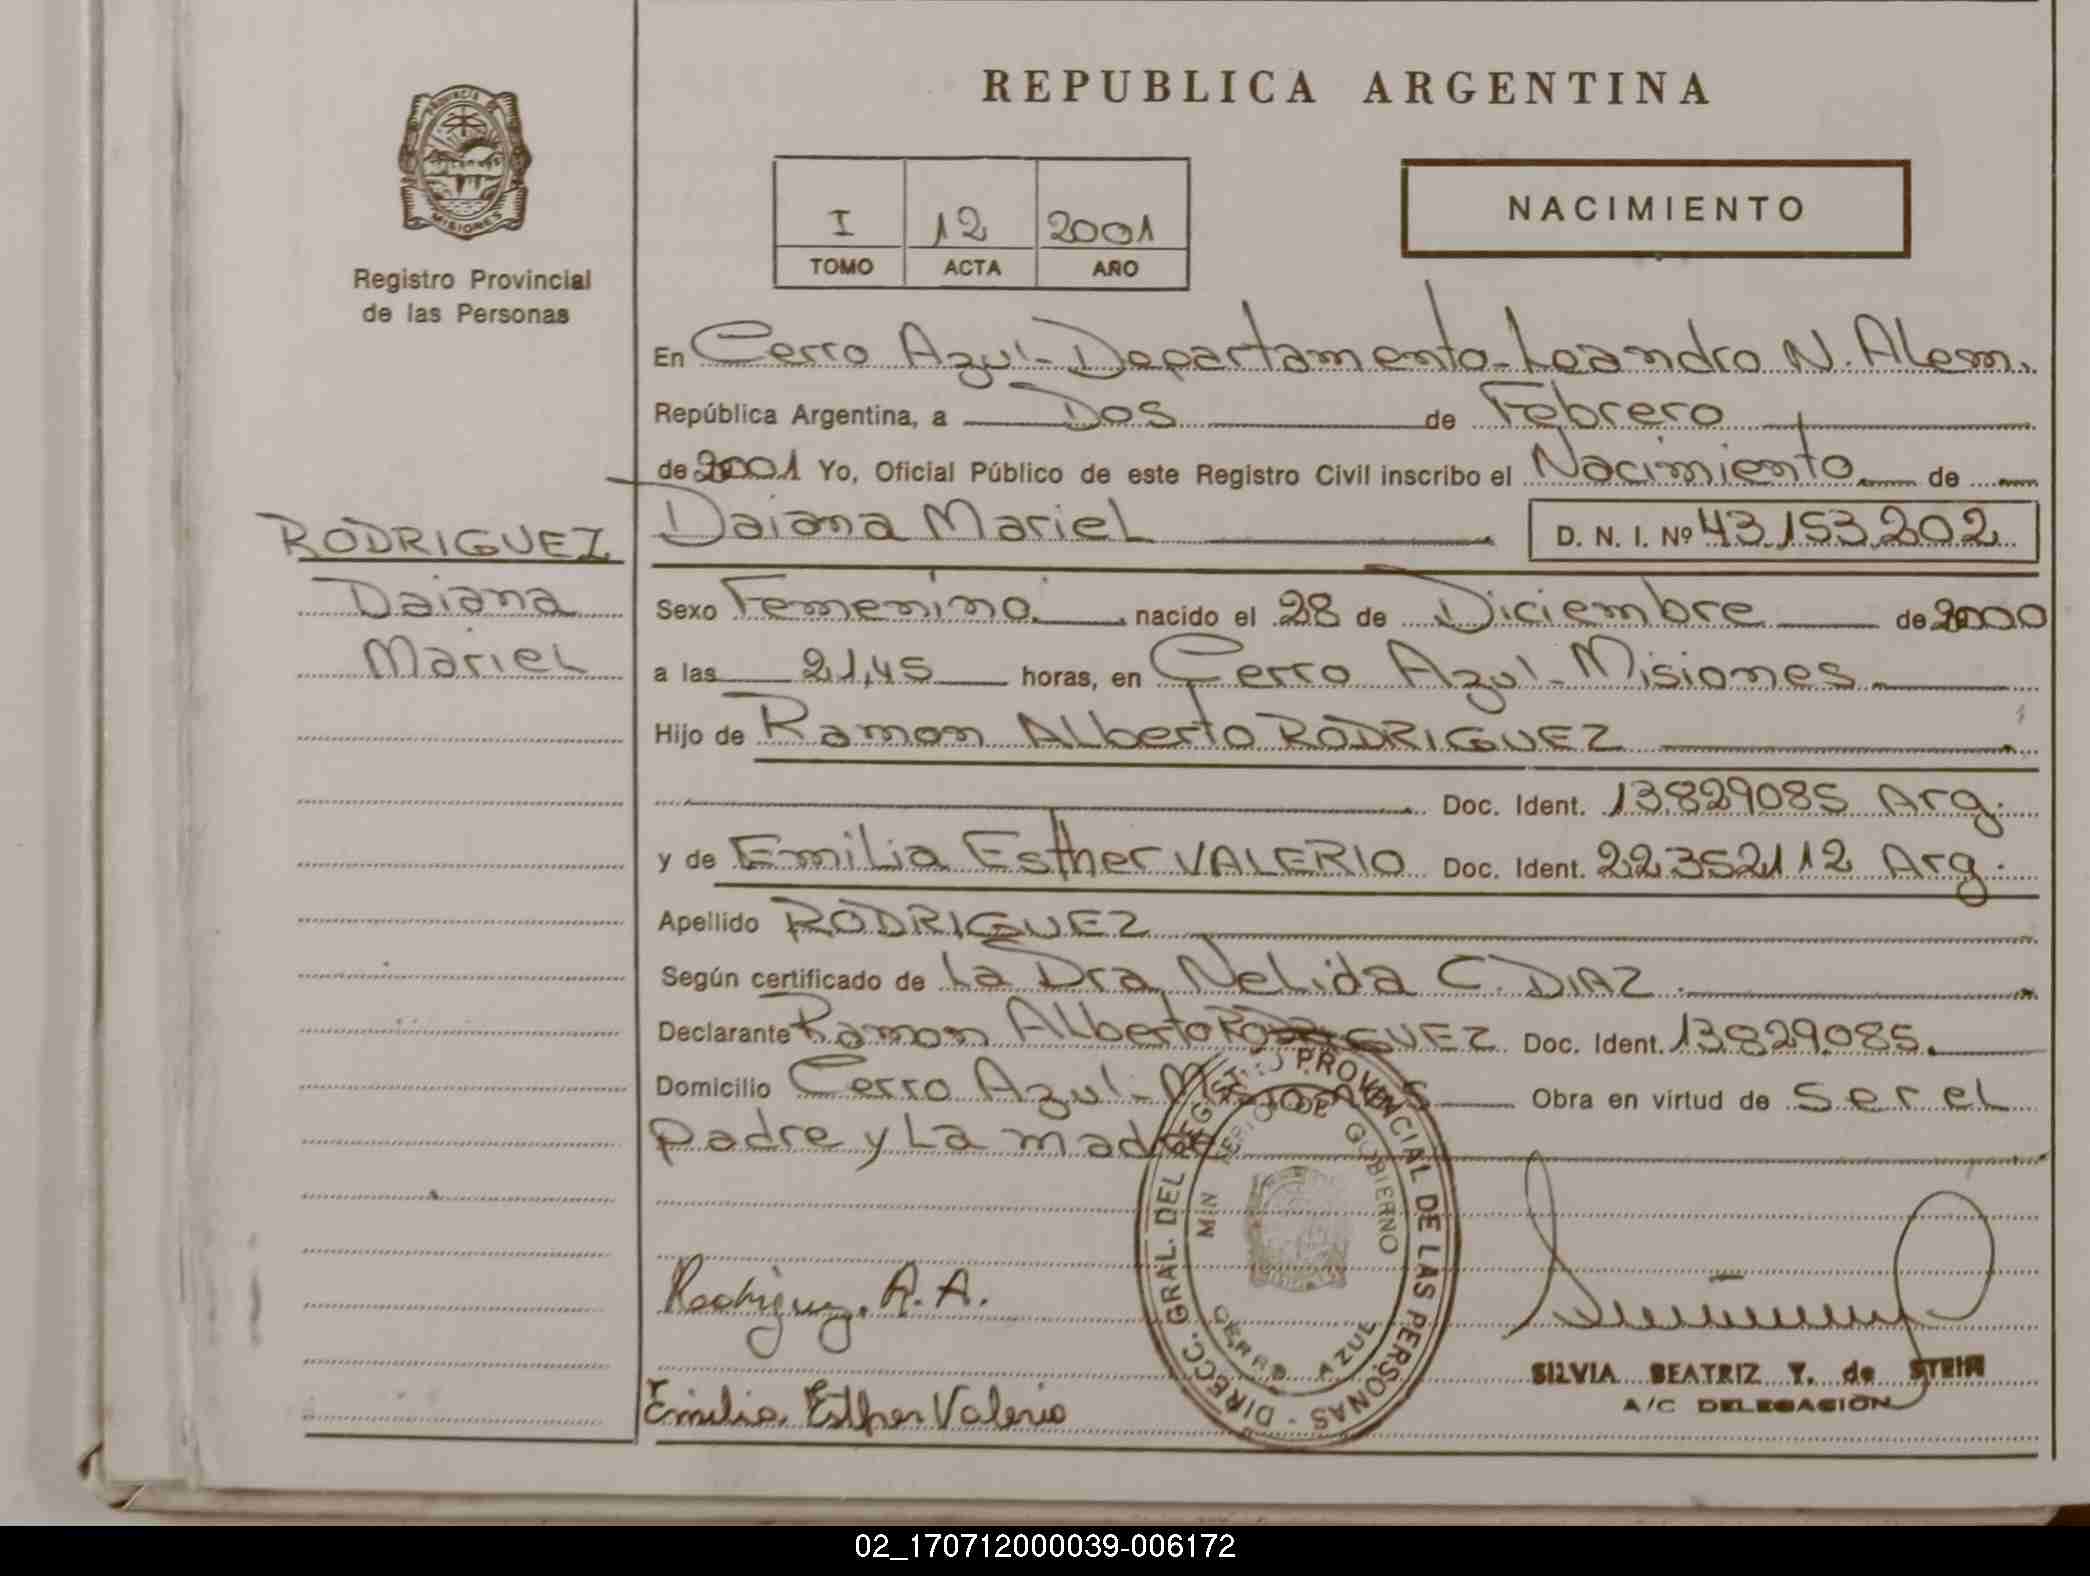 REPUBLICA ARGENTINA
PROVINCIA DE
MISIONES
Registro Provincial
de las Personas
I 12 2001
TOMO ACTA AÑO
NACIMIENTO
En Cerro Azul-Departamento-Leandro N. Alem.
República Argentina, a Dos de Febrero
de 2001 Yo, Oficial Público de este Registro Civil inscribo el Nacimiento de
RODRIGUEZ
Daiana
Mariel
Daiana Mariel D. N. I. Nº 43.153.202
Sexo Femenino nacido el 28 de Diciembre de 2000
a las 21,45 horas, en Cerro Azul-Misiones
Hijo de Ramon Alberto RODRIGUEZ
Doc. Ident. 13.829085 Arg.
y de Emilia Esther VALERIO Doc. Ident. 22352112 Arg.
Apellido RODRIGUEZ
Según certificado de La Dra Nelida C. DIAZ
Declarante Ramon Alberto RODRIGUEZ Doc. Ident. 13829085.
Domicilio Cerro Azul-Misiones Obra en virtud de ser el
padre y La madre
DIRECC. GRAL. DEL REGISTRO PROVINCIAL DE LAS PERSONAS -
MINISTERIO DE GOBIERNO
CERRO AZUL
Rodriguez. A. A.
Emilia Esther Valerio
SILVIA BEATRIZ Y. de STEIN
A/C DELEGACION
02_170712000039-006172